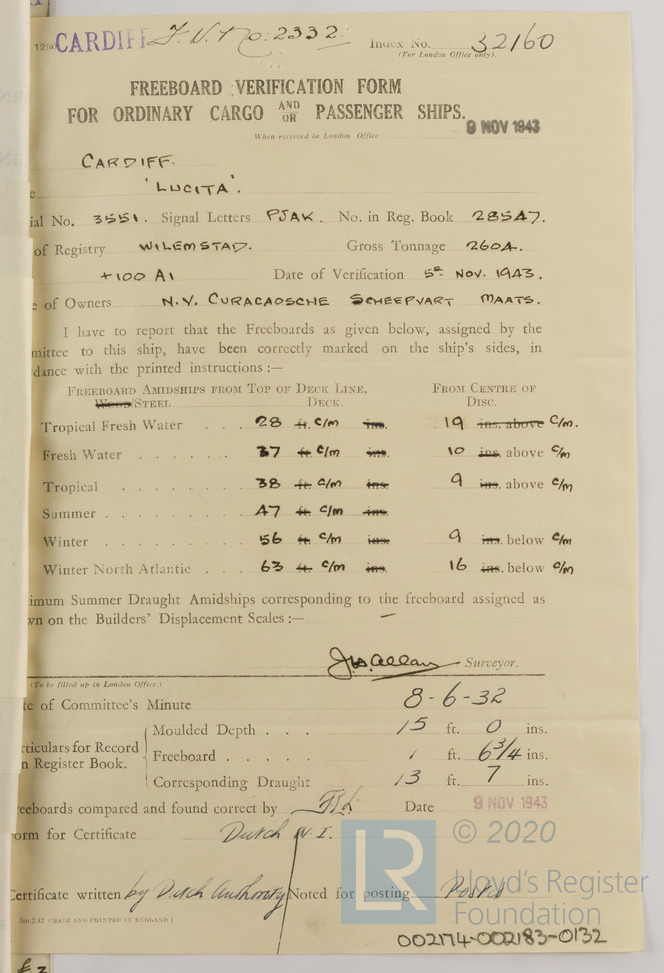 CARDIFF F.V. No. 2332. Index No. 32160
(For London Office only).
FREEBOARD VERIFICATION FORM
FOR ORDINARY CARGO AND OR PASSENGER SHIPS.
When received in London Office 9 NOV 1943
CARDIFF.
'LUCITA'.
ial No. 3551. Signal Letters PJAK. No. in Reg. Book 28547.
of Registry WILEMSTAD. Gross Tonnage 2604.
+100 A1 Date of Verification 5th NOV. 1943.
e of Owners N.V. CURACAOSCHE SCHEEPVART MAATS.
I have to report that the Freeboards as given below, assigned by the
mittee to this ship, have been correctly marked on the ship's sides, in
dance with the printed instructions :—
FREEBOARD AMIDSHIPS FROM TOP OF DECK LINE, FROM CENTRE OF
WOOD/STEEL DECK. DISC.
Tropical Fresh Water . . . 28 ft. c/m ins. 19 ins. above c/m.
Fresh Water . . . . . . 37 ft. c/m ins. 10 ins. above c/m
Tropical . . . . . . . . 38 ft. c/m ins. 9 ins. above c/m
Summer . . . . . . . . 47 ft. c/m ins.
Winter . . . . . . . . . 56 ft. c/m ins. 9 ins. below c/m
Winter North Atlantic . . . 63 ft. c/m ins. 16 ins. below c/m
imum Summer Draught Amidships corresponding to the freeboard assigned as
wn on the Builders' Displacement Scales :— –
Jas Allan Surveyor.
(To be filled up in London Office.)
te of Committee's Minute 8-6-32
Moulded Depth . . . 15 ft. 0 ins.
rticulars for Record
Freeboard . . . . . 1 ft. 6 3/4 ins.
n Register Book.
Corresponding Draught 13 ft. 7 ins.
eeboards compared and found correct by Date 9 NOV 1943
orm for Certificate Dutch N.I.
Certificate written by Dutch Authority Noted for posting Posted
3m.2.42 (MADE AND PRINTED IN ENGLAND.)
© 2020
LR
Lloyd's Register
Foundation
002174-002183-0132